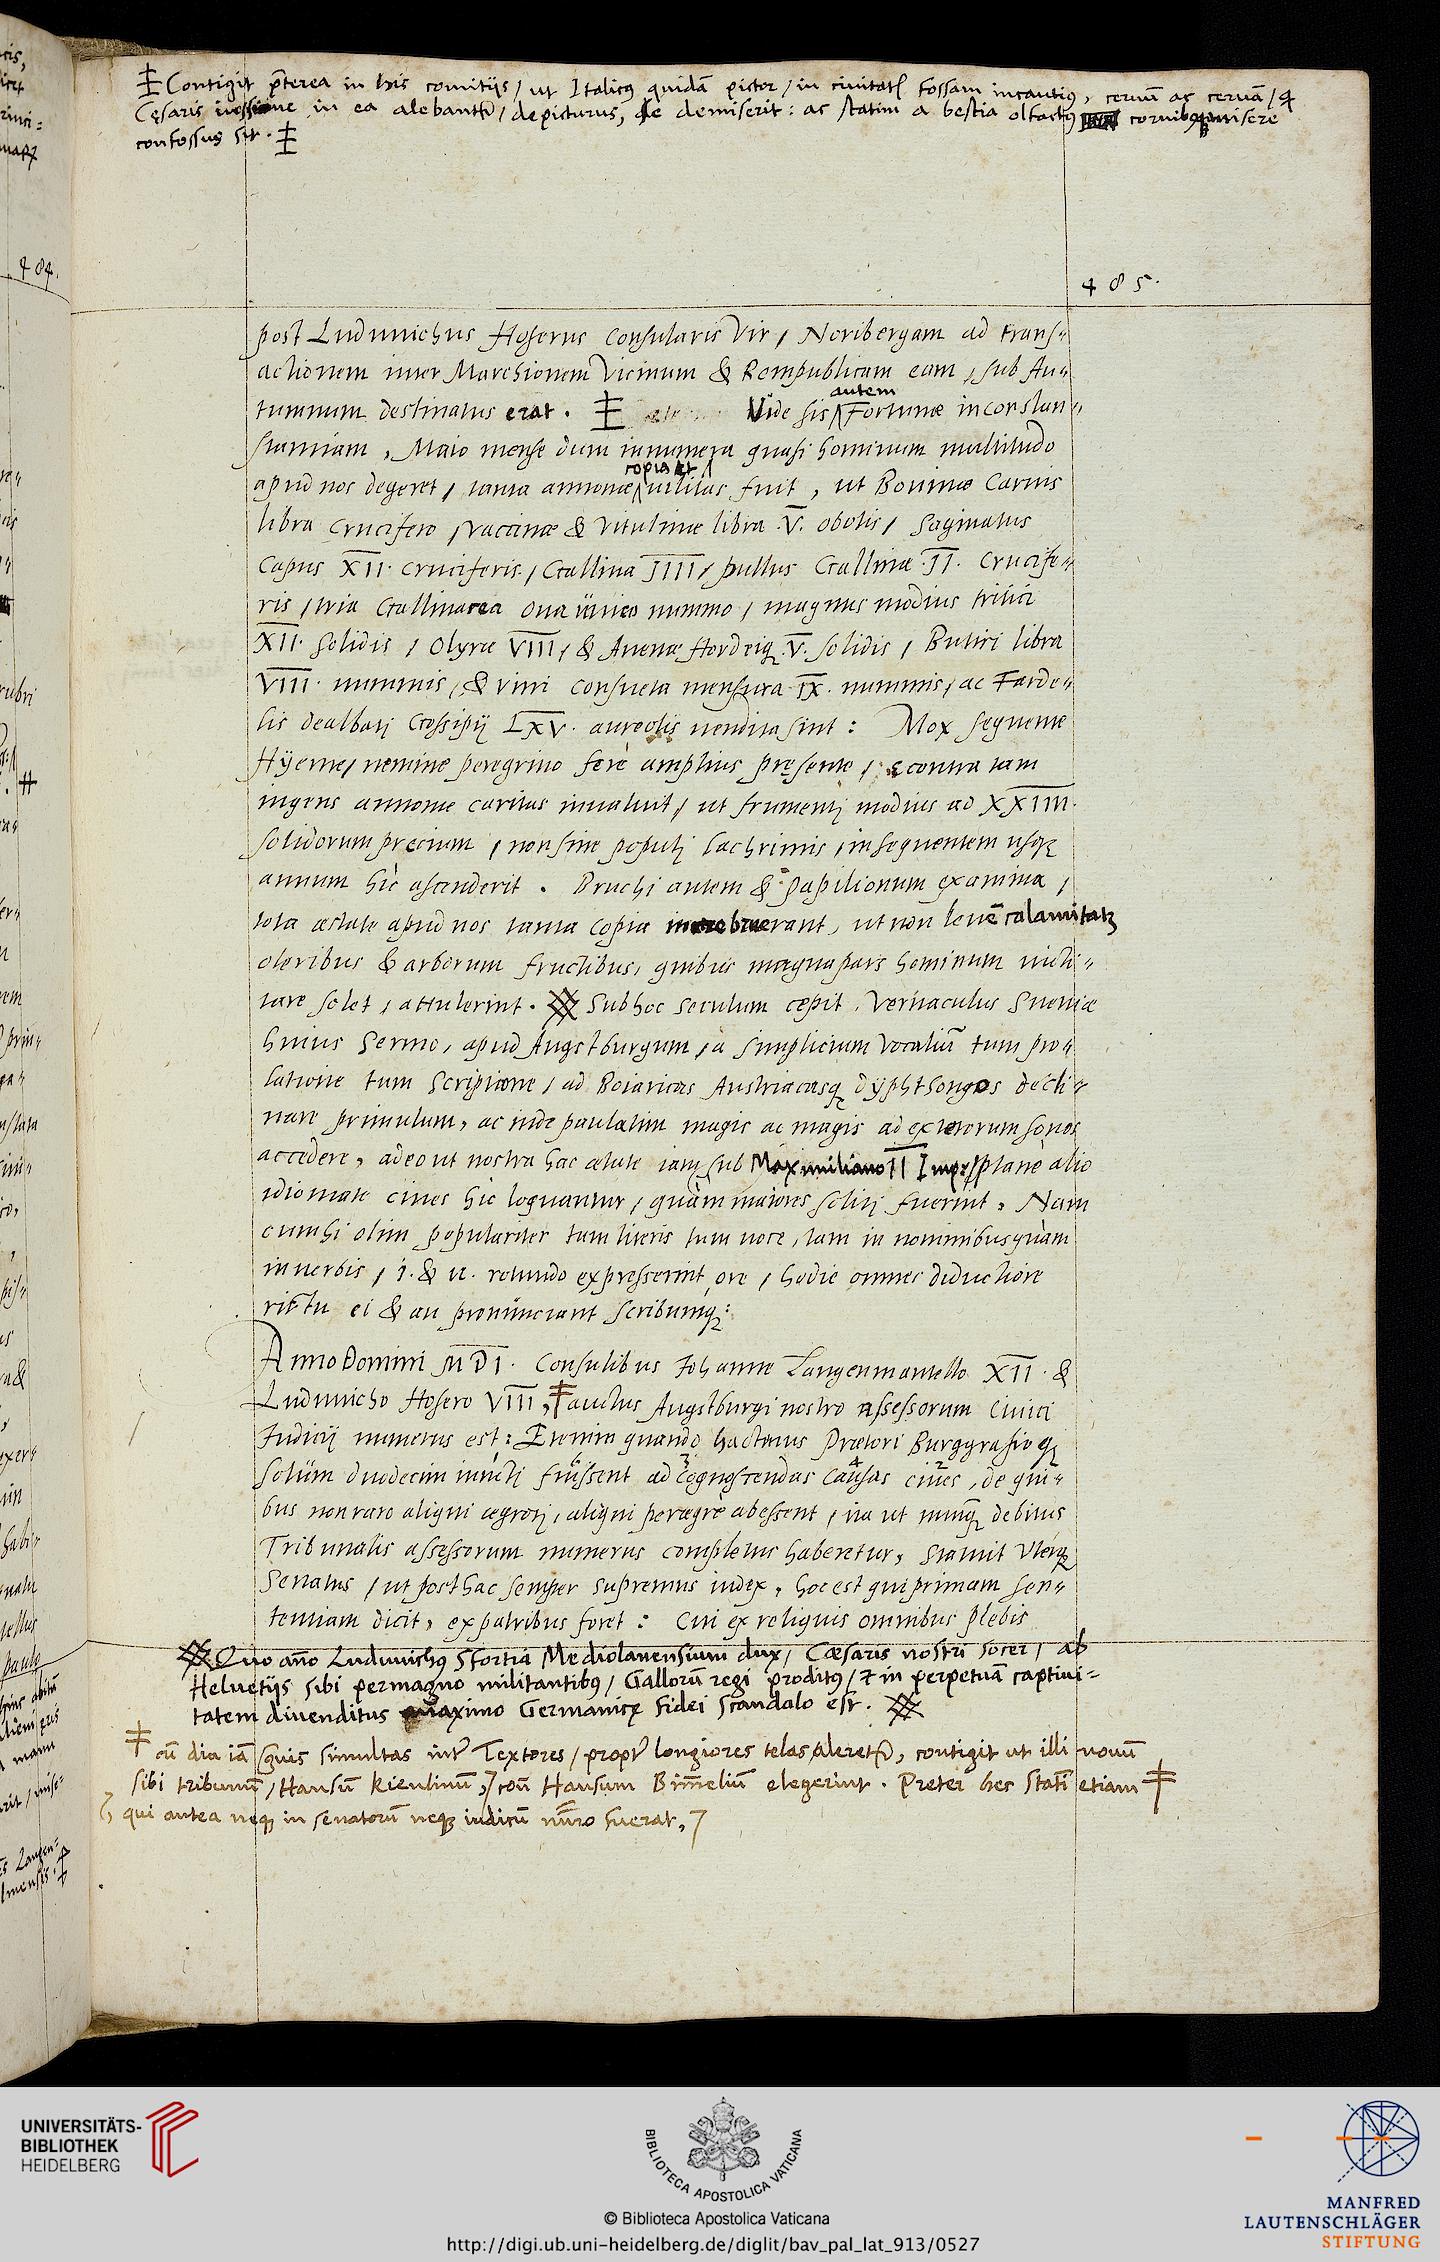 ‡ Contigit p̄terea in his comitijs / ut Italicꝰ quidā pictor / in ciuitatꝭ fossam incautiꝰ, ceruū ac ceruā / q̨
Cęsaris iussione in ea alebantꝰ / depicturus, se demiserit: ac statim a bestia olfactꝰ cornibꝰ misere
confossus sit. ‡
485.
post Luduuichus Hoserus Consularis Vir / Noribergam ad trans⸗
actionem inter Marchionem Vicinum & Rempublicam eam, sub Au⸗
tumnum destinatus erat. ‡ Vide sis Fortunæ inconstan⸗
autem
stantiam, Maio mense dum innumera quasi hominum multitudo
copia et
apud nos degeret / tanta annonæ uilitas fuit, ut Bouinæ Carnis
libra Crucifero / vaccinæ & Vitulinæ libra .V. obolis / Saginatus
Capus XII. cruciferis / Gallina IIII / pullus Gallinæ .II. Crucife⸗
ris / tria Gallinacea oua unico nummo / magnus modius tritici
XII. solidis / Olyræ VIII / & Auenæ Hordeiq .V. solidis / Butiri libra
VIII. nummis / & vini consueta mensura IX. nummis / ac Farde⸗
lis dealbatj Gossipij LXV. aureolis uendita sint: Mox sequente
Hyeme / nemine peregrino fere amplius pręsente / e contra tam
ingens annonæ caritas inualuit / ut frumentj modius ad XXIIII.
solidorum precium / non sine populj lachrimis / in sequentem usq
annum hic ascenderit. Bruchi autem & papilionum examina /
tota æstate apud nos tanta copia increbuerant, ut non leuē calamitatꝭ
oleribus & arborum fructibus, quibus magna pars hominum uicti⸗
tare solet / attulerint. Sub hoc seculum cępit Vernaculus Sueuiæ
huius Sermo, apud Augstburgum / a simplicium Vocaliū tum pro⸗
latione tum Scriptione / ad Boiaricas Austriacasq dyphthongos decli⸗
nare primulum, ac inde paulatim magis ac magis ad exterorum sonos
accedere, adeo ut nostra hac ætate iam sub Maximiliano II Imper plane alio
idiomate ciues hic loquantur / quàm maiores solitj fuerint. Nam
cum hi olim populariter tum literis tum uoce, tam in nominibus quàm
in uerbis / i. & u. rotundo expresserint ore / hodie omnes diductiore
rictu ei & au pronunciant scribuntq:
Anno Domini MDI. Consulibus Iohanne Langenmantello XII. &
Luduuicho Hosero VIII, ‡ auctus Augstburgi nostro assessorum Ciuici
Iudicij numerus est: Etenim quando hactenus Prætori Burggrafioq
solùm duodecim iuncti fuissent ad cognoscendas causas ciues, de qui⸗
bus non raro aliqui ægrotj, aliqui peregrè abessent / ita ut nunq debitus
Tribunalis assessorum numerus completus haberetur, statuit Vterq
Senatus / ut posthac semper supremus iudex, hoc est qui primam sen⸗
tentiam dicit, ex patribus foret: Cui ex reliquis omnibus plebis
Quo año Luduuichꝰ Sfortia Mediolanensium dux / Cæsaris nostri socer / ab
Heluetijs sibi permagno militantibꝰ / Gallorū regi proditꝰ / & in perpetuā captiui⸗
tatem diuenditus maximo Germanicę fidei scandalo est.
‡ cū diu iā grauis simultas intꝰ Textores / proptꝰ longiores telas aleretꝰ, contigit ut illi nouū
sibi tribunū / Hansū Kienlinū, coñ Hansum Bim̄eliū elegerint. Preter hec Statꝭ etiam ‡
qui antea neq in senatorū neq iudicū nūro fuerat,
UNIVERSITÄTS-
BIBLIOTHEK
HEIDELBERG
BIBLIOTECA APOSTOLICA VATICANA
© Biblioteca Apostolica Vaticana
http://digi.ub.uni-heidelberg.de/diglit/bav_pal_lat_913/0527
MANFRED
LAUTENSCHLÄGER
STIFTUNG